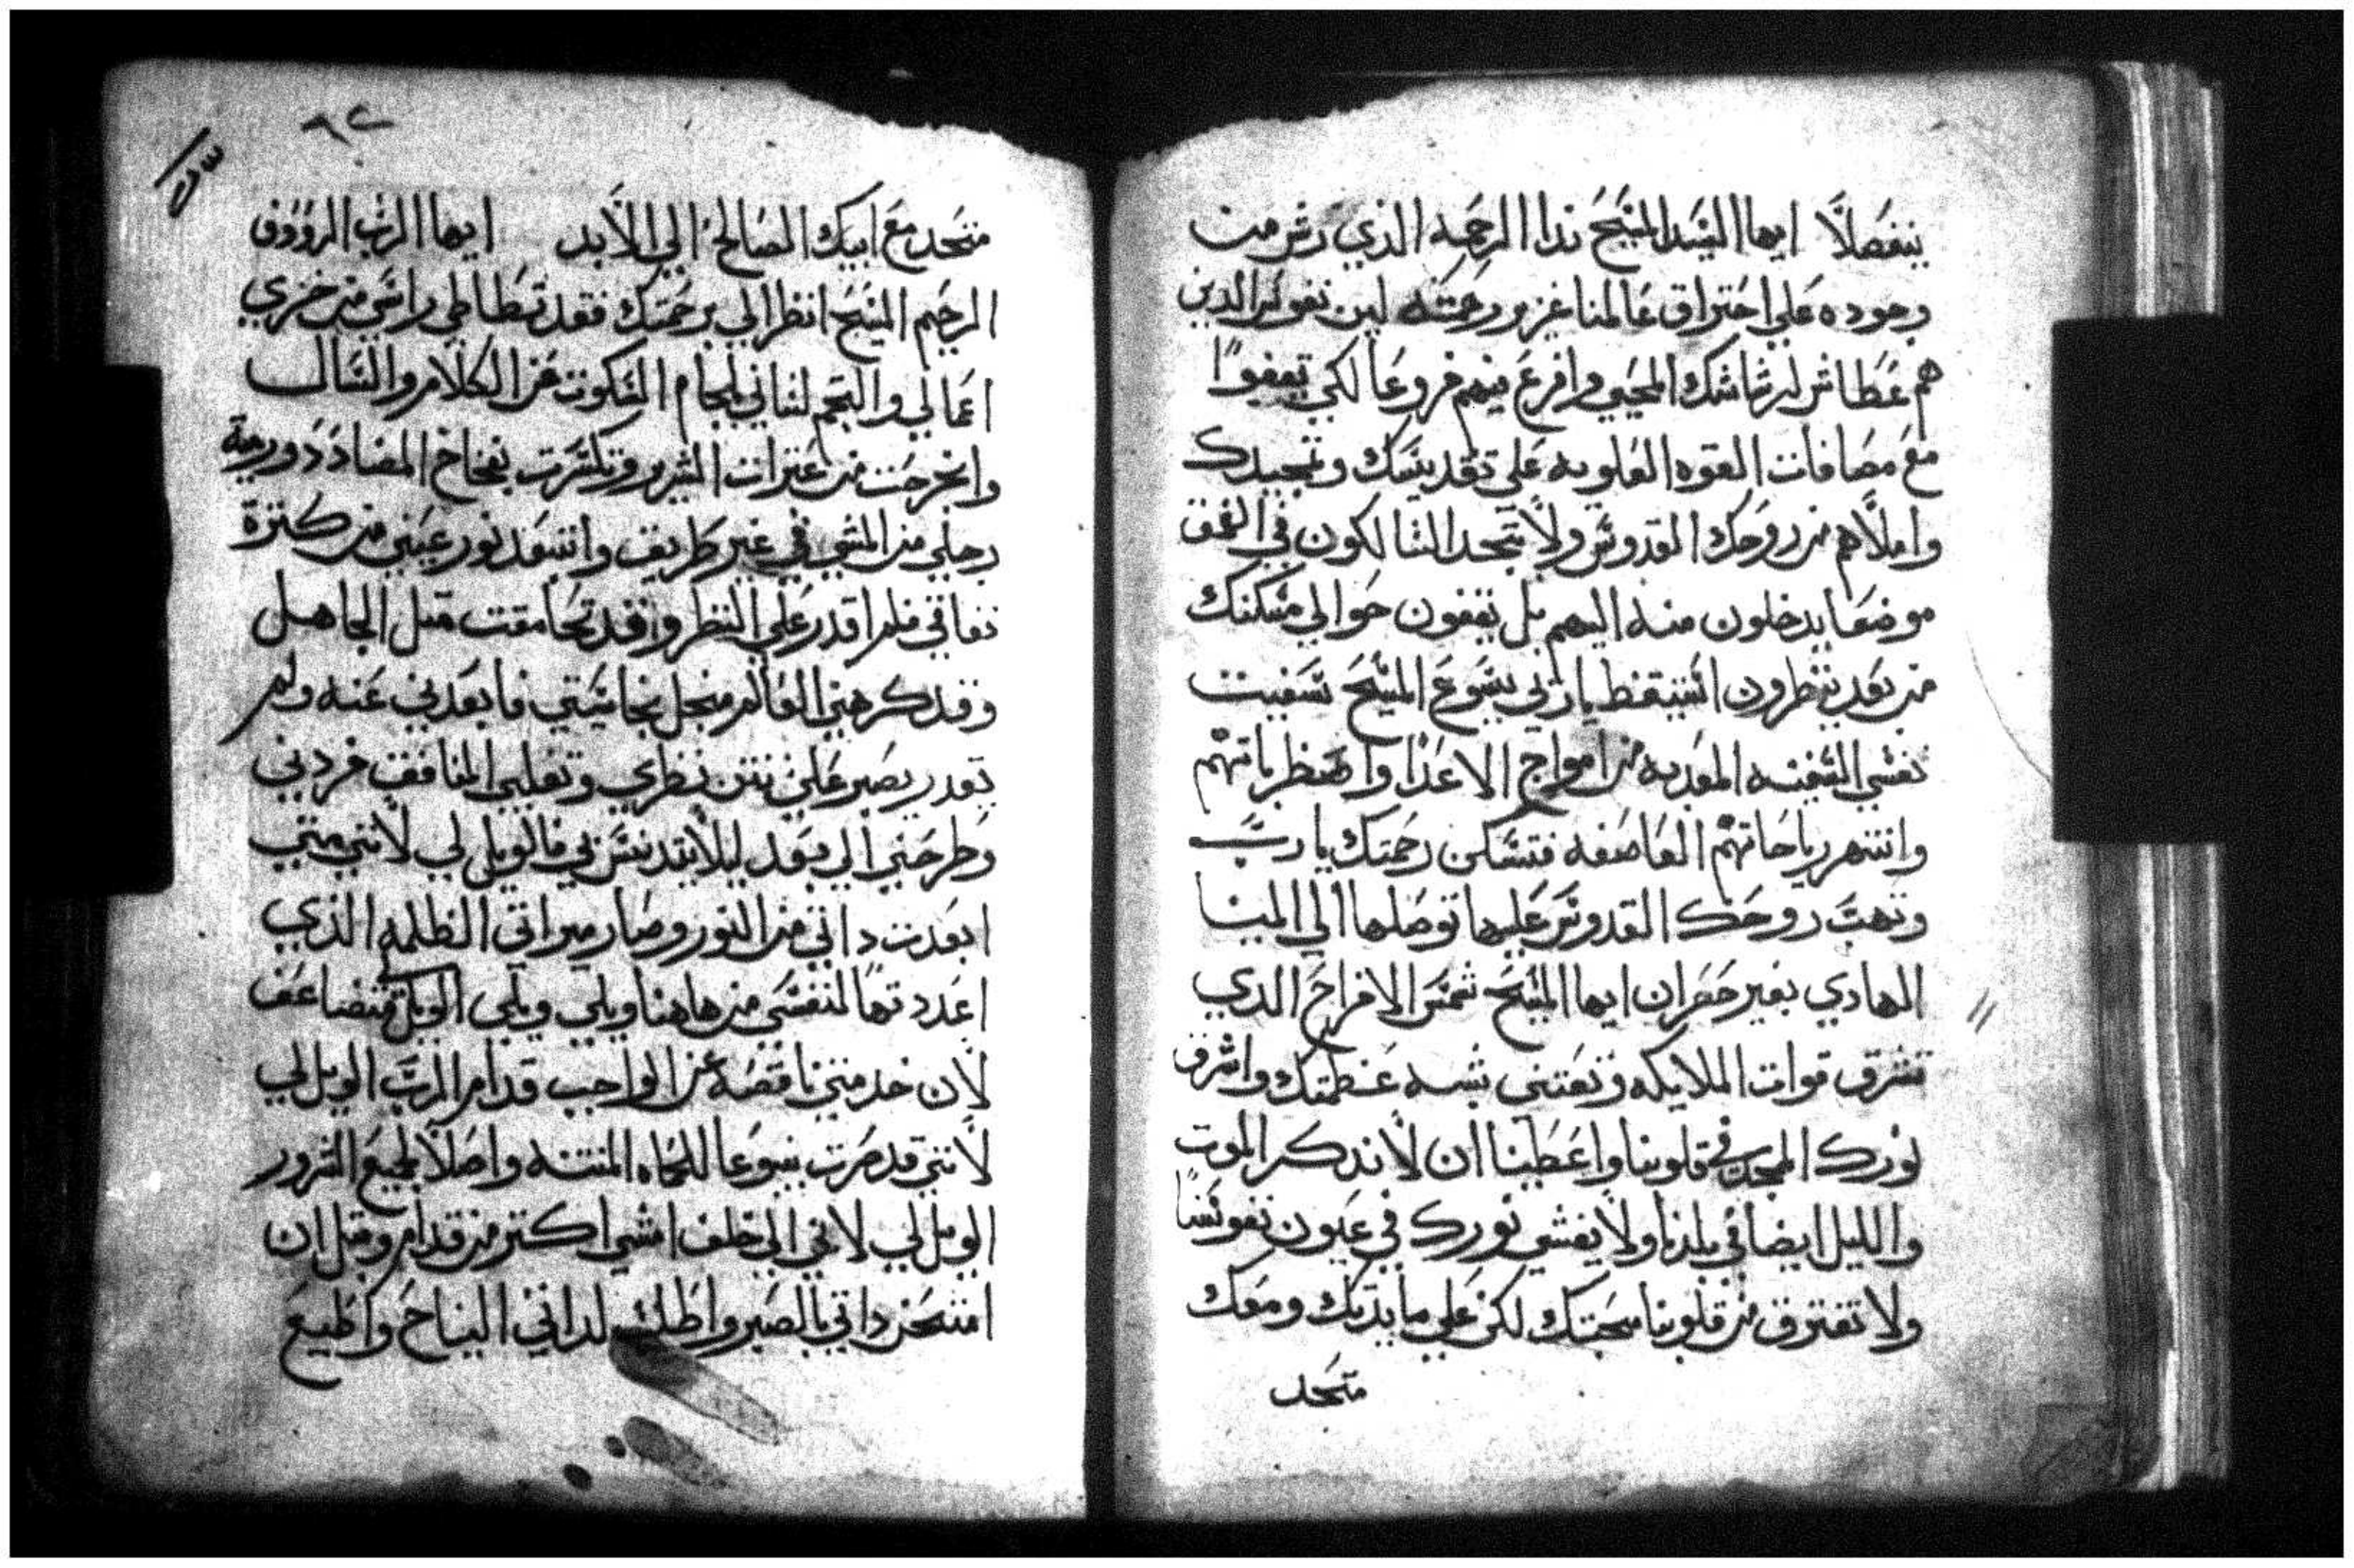 ينفصلاً ايها السيد المسيح ندا الرحمه الذي رش من
وجوده علي احتراق عالمنا غزير رحمته لين نفوس الدين
هم عطاش لرشاشك المحيي وافرع فيهم فروعا لكي يقفوا
مع مصافات القوه العلويه علي تقديسك وتمجيدك
واملاهم من روحك القدوس ولا تجد الشالكون في العمق
موضعا يدخلون منه اليهم بل يقفون حوالي مسكنك
من بعد ينظرون استيقظ يا ربي يسوع المسيح سفينت
نفسي السفينه المعديه من امواج الاعدا واضطراباتهم
وانتهر رياحاتهم العاصفه فتسكن رحمتك يا رب
وتهب روحك القدوس عليها توصلها الي المينا
الهادي بغير خسران ايها المسيح شمس الافراح الدي
تشرق قوات الملايكه وتغتني بسه عظمتك واشرق
نورك المجد في قلوبنا واعطينا ان لا ندكر الموت
والليل ايضا في بلدنا ولا يغشي نورك في عيون نفوسنا
ولا تفترق من قلوبنا محبتك لكن علي مايدتك ومعك
متحد
٩٢
متحد مع ابيك الصالح الي الابد ايها الرب الرووف
الرحيم المسيح انظر الي برحمتك فقد تطاطي راسي من خزي
اعمالي والتجم لساني بلجام السكوت عن الكلام والسال
وانجرحت من عترات الشرير وتكسرت بفخاخ المضادد ورمة
رجلي من المشي في غير طريق وانتقد نور عيني من كترة
نفاقي فلم اقدر علي النظر وقد تحامقت متل الجاهل
وقد كرهني العالم منجل نجاستي فابعدني عنه ولم
يقدر يصبر علي نتن نظري وتقلبي المنافق فردني
وطرحني الي بعد ليلا يتدنس بي فالويل لي لانني متي
ابعدت داتي من النور وصار ميراتي الظلمه الذي
اعددتها لنفسي من هاهنا ويلي ويلي الويل متضاعف
لان خدمتي ناقصة عن الواجب قدام الرب الويل لي
لانني قد صرت ينبوعا للحماه المنتنه واصلا لجميع الشرور
الويل لي لاني الي خلف امشي اكتر من قدام وقبل ان
امتحن داتي بالصبر واطلب لداتي النياح واطيع